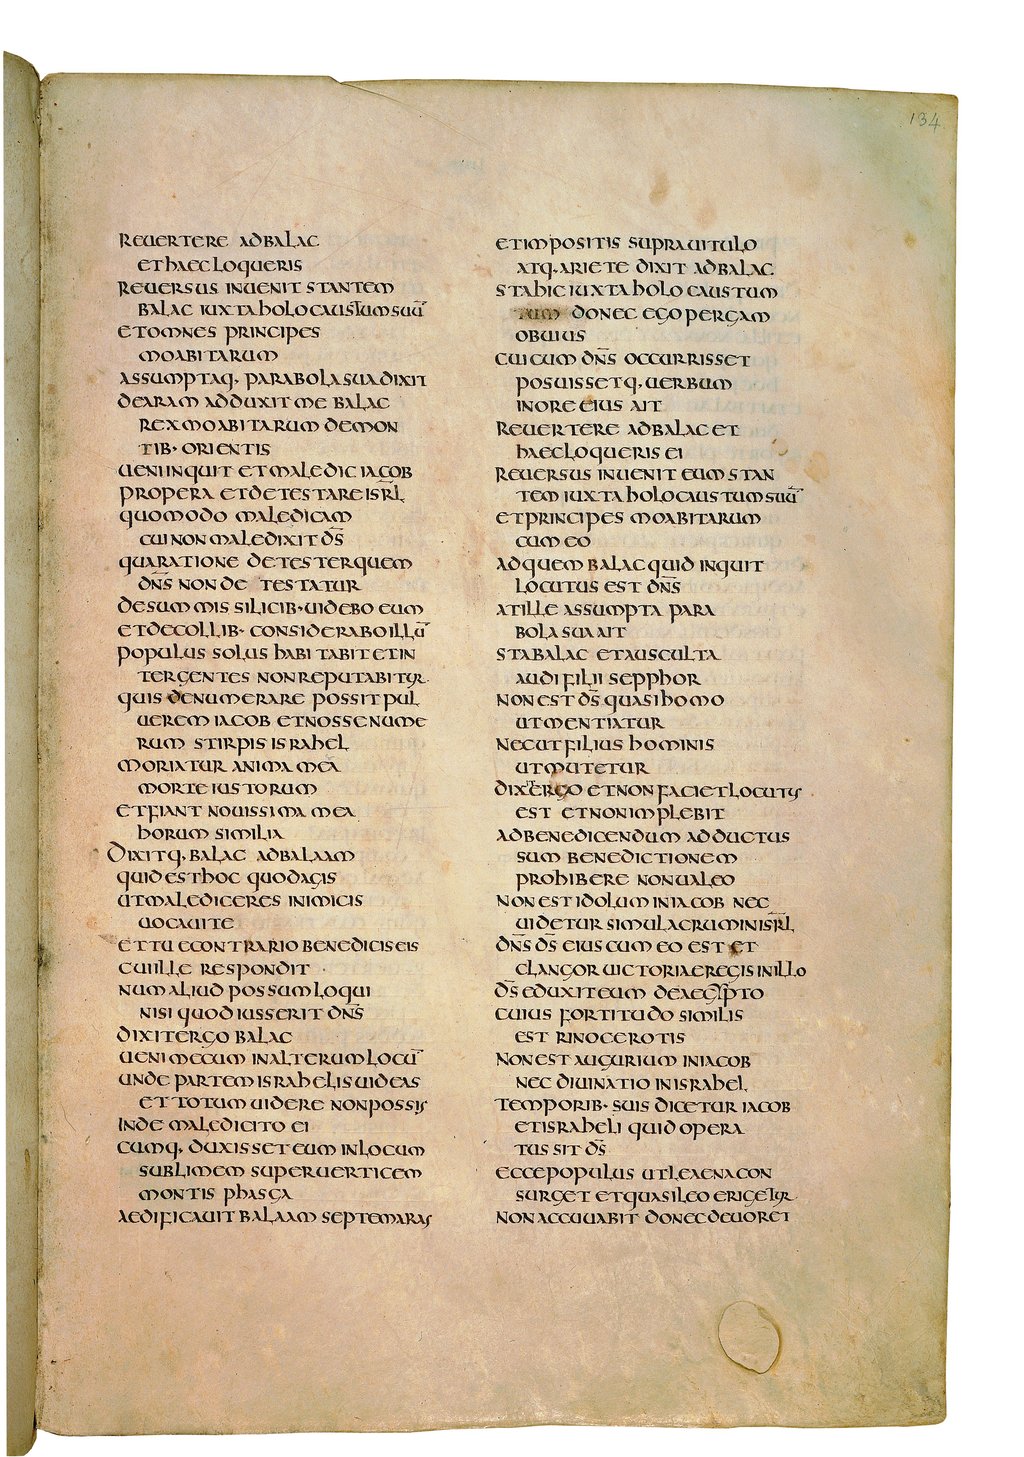 134
REUERTERE ADBALAC
ETHAEC LOQUERIS
REUERSUS INUENIT STANTEM
BALAC IUXTA HOLOCAUSTUM SUŪ
ETOMNES PRINCIPES
MOABITARUM
ASSUMPTAQ· PARABOLA SUA DIXIT
DEARAM ADDUXIT ME BALAC
REX MOABITARUM DEMON
TIB· ORIENTIS
UENI INQUIT ET MALEDIC IACOB
PROPERA ET DETESTARE ISRL̄
QUOMODO MALEDICAM
CUI NON MALEDIXIT D̄S
QUA RATIONE DETESTER QUEM
DN̄S NON DETESTATUR
DESUMMIS SILICIB· UIDEBO EUM
ET DECOLLIB· CONSIDERABO ILLŪ
POPULUS SOLUS HABITABIT ET IN
TER GENTES NON REPUTABITUR
QUIS DENUMERARE POSSIT PUL
UEREM IACOB ET NOSSE NUME
RUM STIRPIS ISRAHEL
MORIATUR ANIMA MEA
MORTE IUSTORUM
ET FIANT NOUISSIMA MEA
HORUM SIMILIA
DIXITQ· BALAC AD BALAAM
QUID EST HOC QUOD AGIS
UT MALEDICERES INIMICIS
UOCAUI TE
ET TU ECONTRARIO BENEDICIS EIS
CUI ILLE RESPONDIT
NUM ALIUD POSSUM LOQUI
NISI QUOD IUSSERIT DN̄S
DIXIT ERGO BALAC
UENI MECUM IN ALTERUM LOCŪ
UNDE PARTEM ISRAHELIS UIDEAS
ET TOTUM UIDERE NON POSSIS
INDE MALEDICITO EI
CUMQ· DUXISSET EUM IN LOCUM
SUBLIMEM SUPER UERTICEM
MONTIS PHASGA
AEDIFICAUIT BALAAM SEPTEM ARAS
ET IMPOSITIS SUPRA UITULO
ATQ· ARIETE DIXIT AD BALAC
STA HIC IUXTA HOLOCAUSTUM
DONEC EGO PERGAM
OBUIUS
CUI CUM DN̄S OCCURRISSET
POSUISSETQ· UERBUM
IN ORE EIUS AIT
REUERTERE AD BALAC ET
HAEC LOQUERIS EI
REUERSUS INUENIT EUM STAN
TEM IUXTA HOLOCAUSTUM SUŪ
ET PRINCIPES MOABITARUM
CUM EO
AD QUEM BALAC QUID INQUIT
LOCUTUS EST DN̄S
AT ILLE ASSUMPTA PARA
BOLA SUA AIT
STA BALAC ET AUSCULTA
AUDI FILII SEPPHOR
NON EST D̄S QUASI HOMO
UT MENTIATUR
NEC UT FILIUS HOMINIS
UT MUTETUR
DIXIT ERGO ET NON FACIET LOCUTUS
EST ET NON IMPLEBIT
AD BENEDICENDUM ADDUCTUS
SUM BENEDICTIONEM
PROHIBERE NON UALEO
NON EST IDOLUM IN IACOB NEC
UIDETUR SIMULACRUM IN ISRL̄
DN̄S D̄S EIUS CUM EO EST ET
CLANGOR UICTORIAE REGIS IN ILLO
D̄S EDUXIT EUM DE AEGYPTO
CUIUS FORTITUDO SIMILIS
EST RINOCEROTIS
NON EST AUGURIUM IN IACOB
NEC DIUINATIO IN ISRAHEL
TEMPORIB· SUIS DICETUR IACOB
ET ISRAHELI QUID OPERA
TUS SIT D̄S
ECCE POPULUS UT LEAENA CON
SURGET ET QUASI LEO ERIGETUR
NON ACCUUABIT DONEC DEUORET